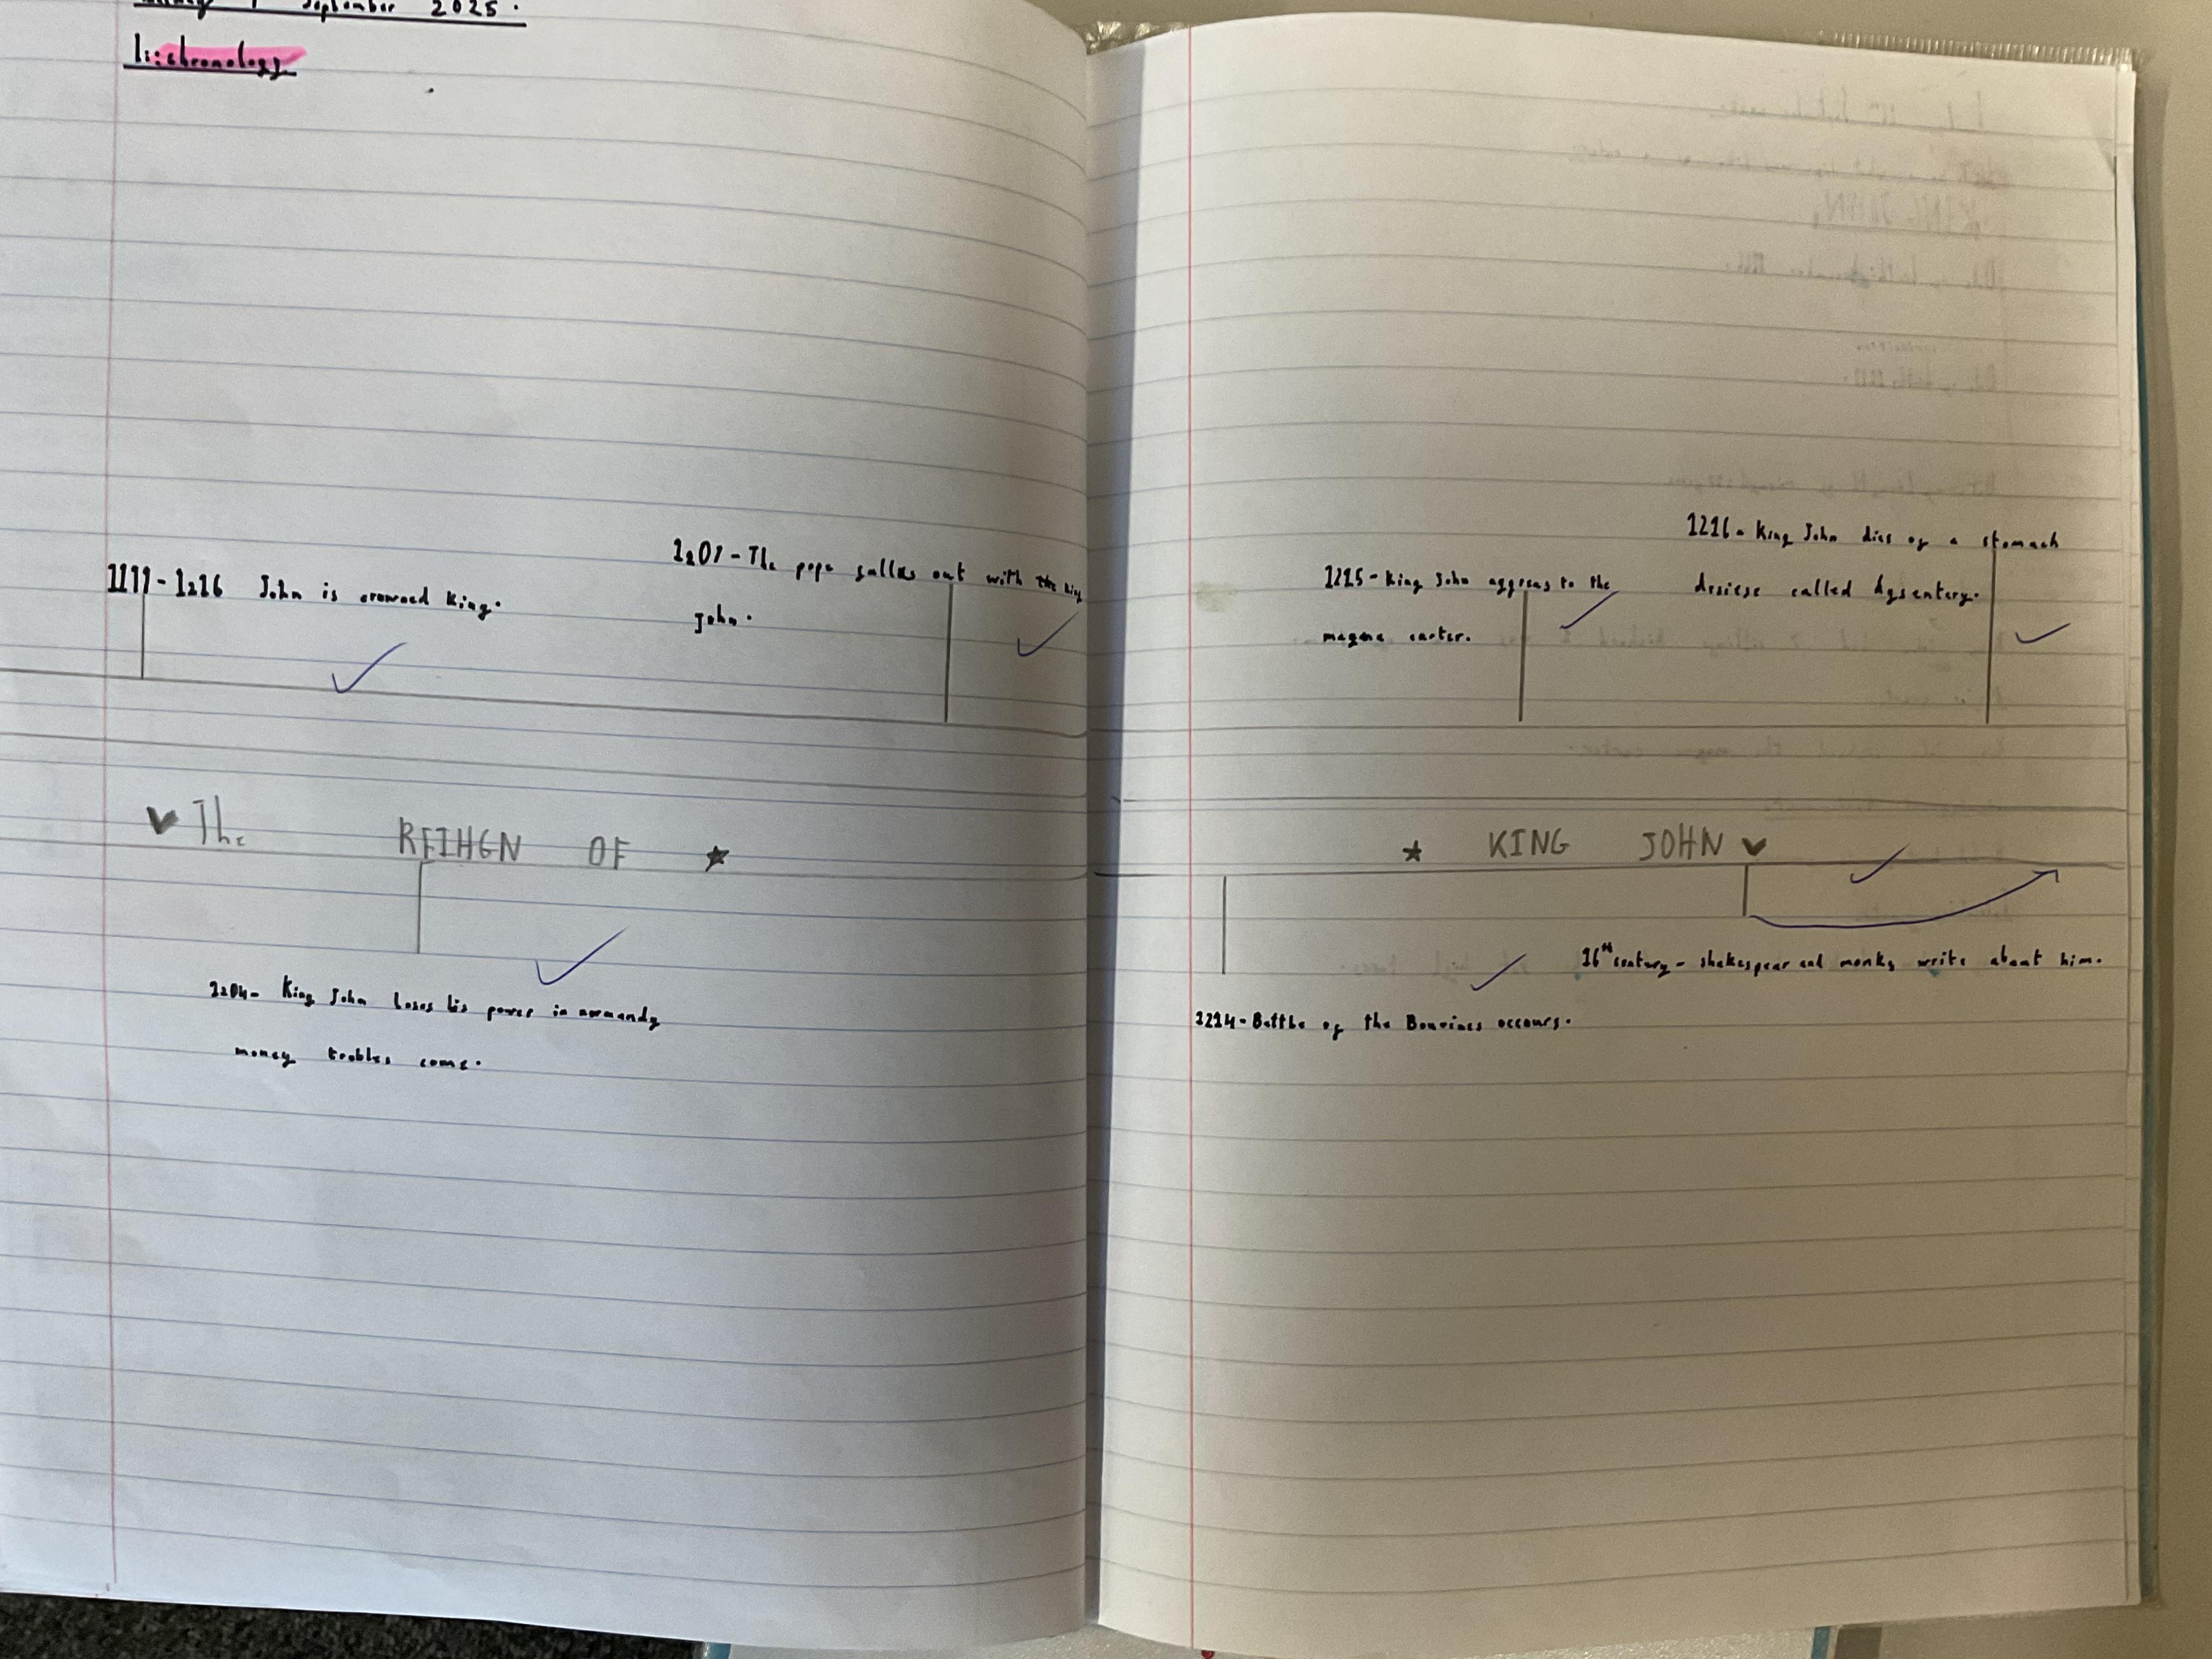 September 2025.
li:chronology
1199-1216 John is crowned King.
1207-The pope falles out with the king
john.
The REIHGN OF
1204- King John Loses his power in normandy
money trobles come.
1215-King John aggrees to the
magna carter.
1216-King John dies of a stomach
desiese called dysentery.
KING JOHN
16th century- shakespear and monks write about him.
1214-Battle of the Bouvines occours.